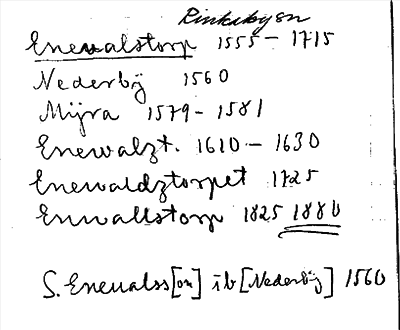 Rinkabyen
Enevalstorp 1555 - 1715
Nederbÿ 1560
Mÿra 1579 - 1581
Enewalzt. 1610 - 1630
Enewaldztorpet 1725
Enwallstorp 1825 1880
S. Eneualss[on] ib [Nederbÿ] 1560